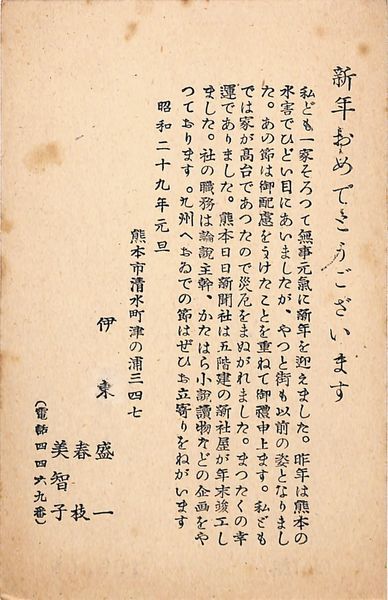 新年おめでとうございます
私ども一家そろつて無事元氣に新年を迎えました。昨年は熊本の
水害でひどい目にあいましたが、やつと街も以前の姿となりまし
た。あの節は御配慮をうけたことを重ねて御禮申上ます。私ども
では家が高台であつたので災厄をまぬがれました。まつたくの幸
運でありました。熊本日日新聞社は五階建の新社屋が年末竣工し
ました。社の職務は論説主幹、かたはら小説讀物などの企画をや
つております。九州へおゐでの節はぜひお立寄りをねがいます
昭和二十九年元旦
熊本市清水町津の浦三四七
伊東 盛一
春枝
美智子
(電話四四六九番)